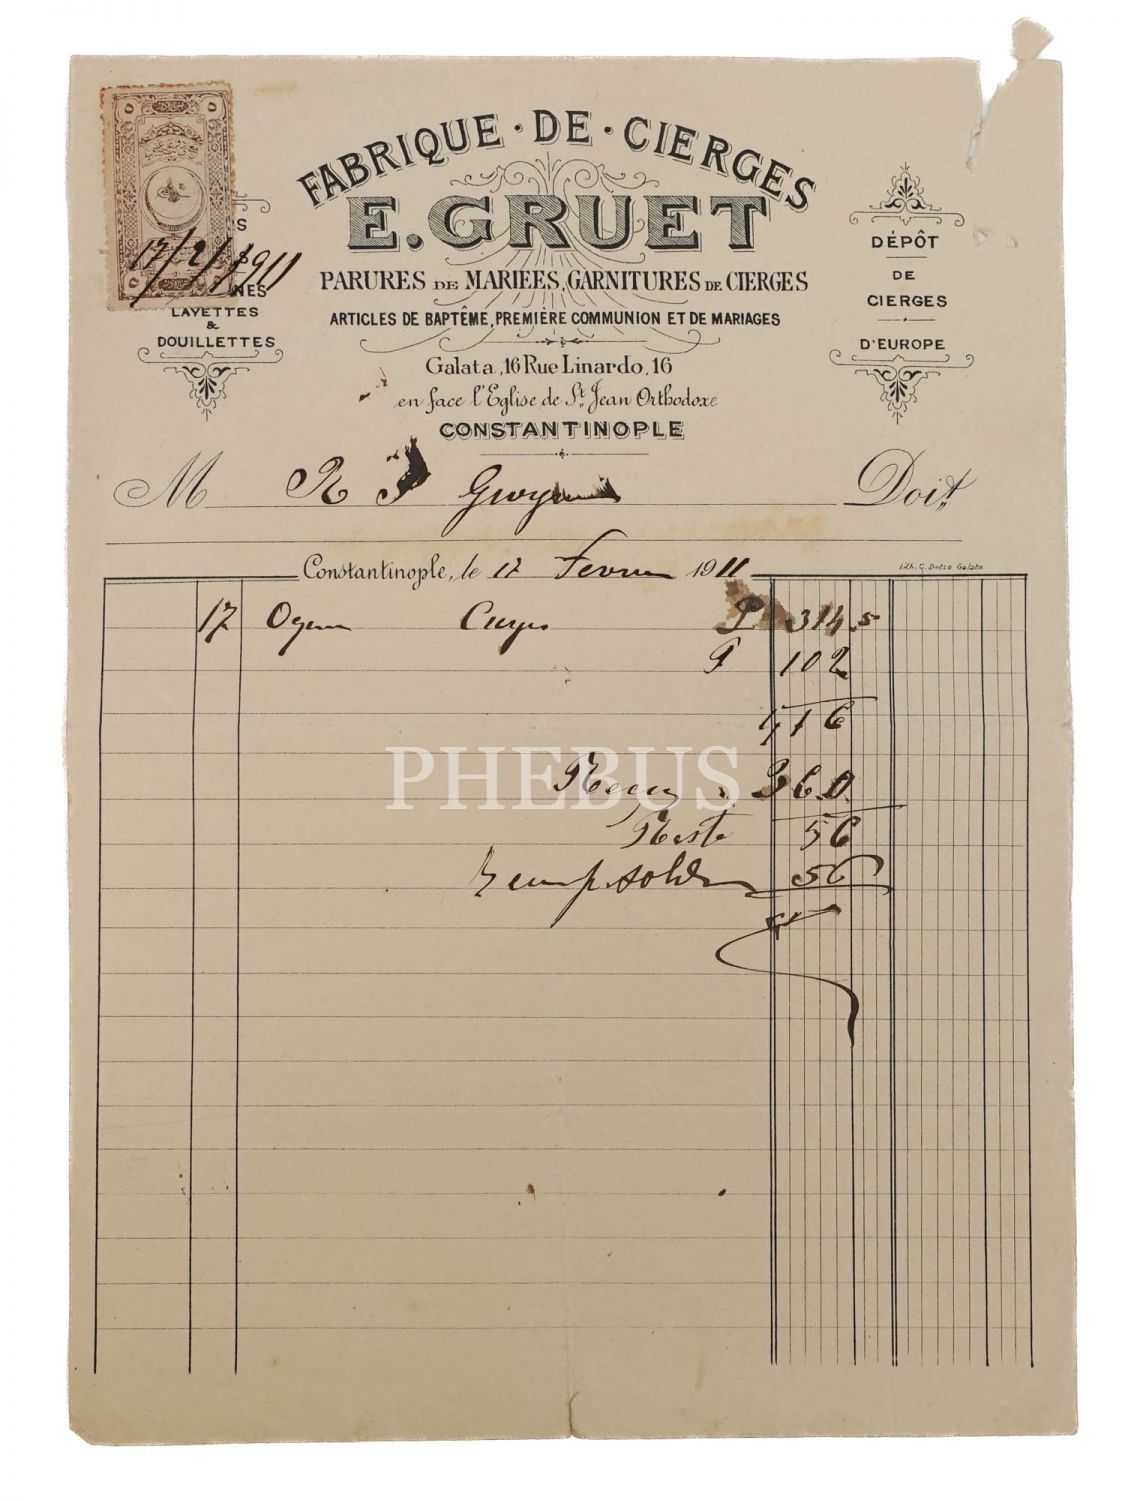 FABRIQUE · DE · CIERGES
E. GRUET
PARURES DE MARIEES, GARNITURES DE CIERGES
ARTICLES DE BAPTÊME, PREMIÈRE COMMUNION ET DE MARIAGES
Galata, 16 Rue Linardo, 16
en face l'Eglise de St. Jean Orthodoxe
CONSTANTINOPLE
٥ ٥
17/2/1911
٥ ٥
NES
LAYETTES
&
DOUILLETTES
DÉPÔT
DE
CIERGES
D'EUROPE
M R Doit
Constantinople, le 17 Fevrier 1911
Lith. C. Datzo Galata
17 P 314.5
P 102
416
PHEBUS
Reçu 360
Reste 56
56